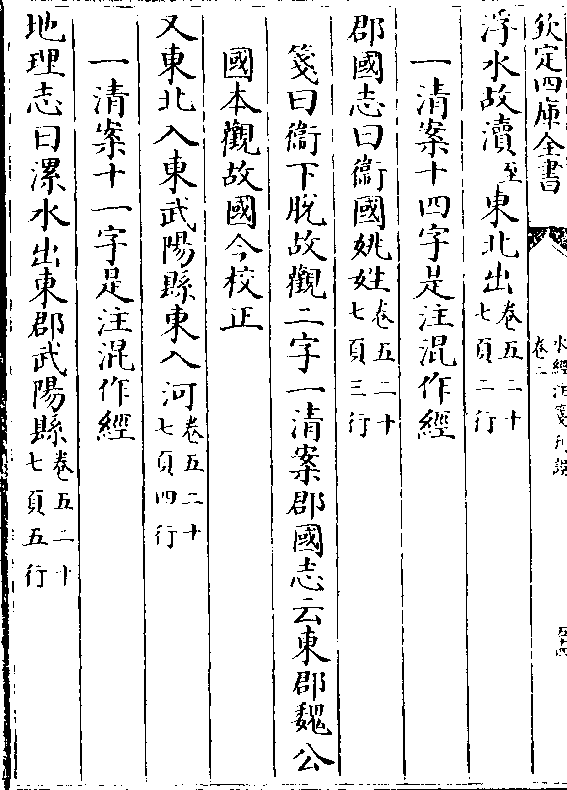 欽定四庫全書
水經注箋刊誤
卷二
五十四
浮水故瀆至東北出卷五二十七頁二行
一清案十四字是注混作經
郡國志曰衞國姚姓卷五二十七頁三行
箋曰衞下脫故觀二字一清案郡國志云東郡魏公
國本觀故國今校正
又東北入東武陽縣東入河卷五二十七頁四行
一清案十一字是注混作經
地理志曰漯水出東郡武陽縣卷五二十七頁五行